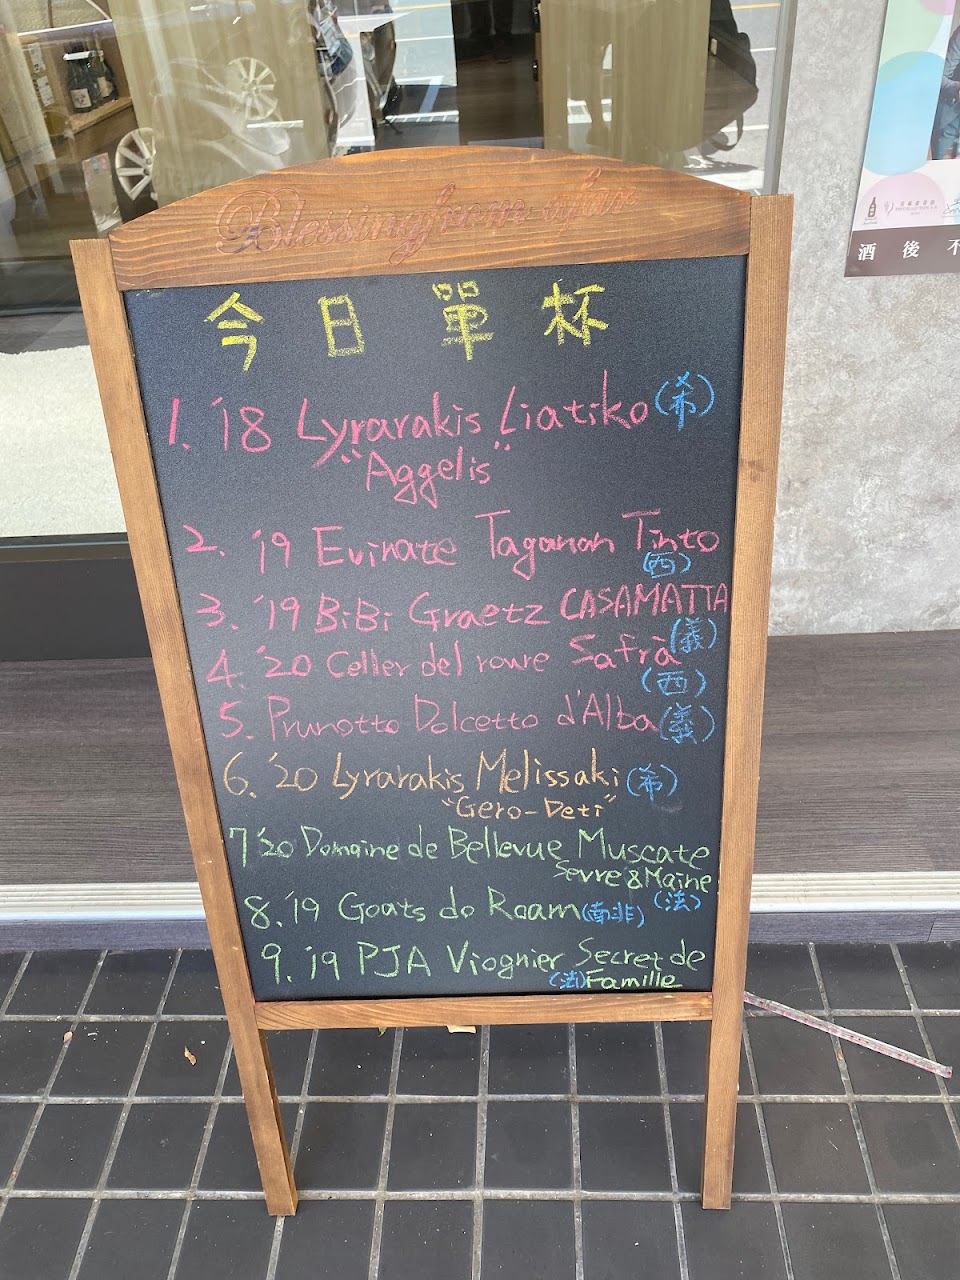 Blessing from wine
今日單杯
1. '18 Lyrarakis Liatiko (希)
"Aggelis"
2. '19 Evinate Taganan Tinto
(西)
3. '19 BiBi Graetz CASAMATTA
(義)
4. '20 Celler del roure Safrà
(西)
5. Prunotto Dolcetto d'Alba (義)
6. '20 Lyrarakis Melissaki (希)
"Gero-Deti"
7 '20 Domaine de Bellevue Muscate
Sevre & Maine
(法)
8. '19 Goats do Roam (南非)
9. '19 PJA Viognier Secret de
(法) Famille
酒後不